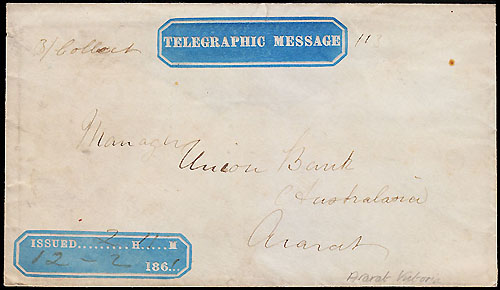 3/ Collect
TELEGRAPHIC MESSAGE
113
Manager
Union Bank
Australasia
Ararat
ISSUED.........2 H.....11 M
12 - 2 186...1
Ararat Victoria